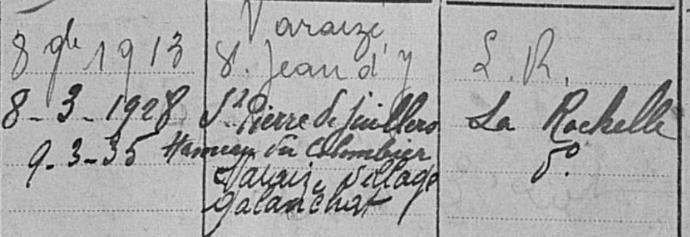 Varaize
8 9bre 1913 St. Jean d'y L. R.
8-3-1928 St Pierre de Juillers La Rochelle
9-3-35 Hameau du Colombier do
Varaize village
Galanchat